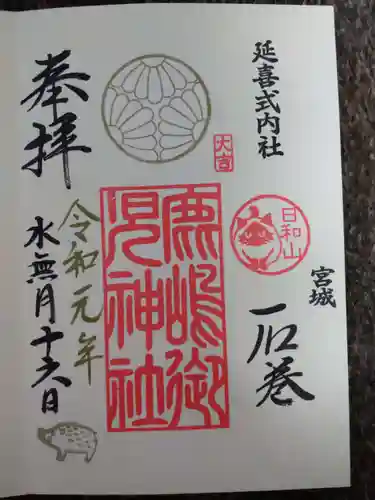 延喜式内社
宮城
石巻
日和山
大吉
鹿嶋御
児神社
奉拝
令和元年
水無月十六日